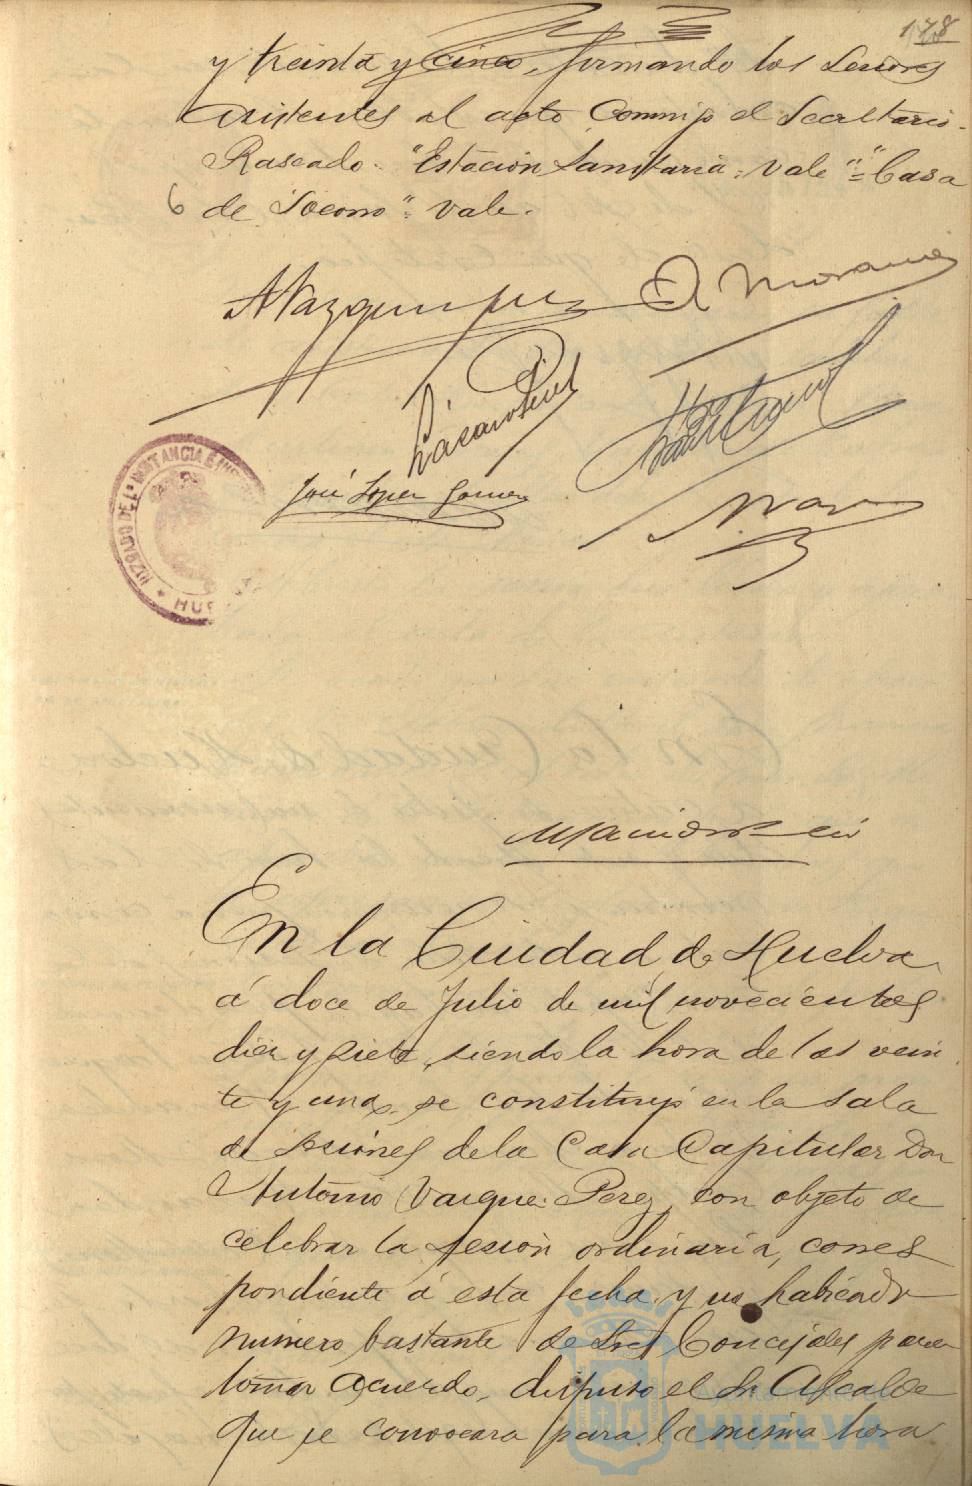 178
y treinta y cinco, firmando los Señores
asistentes al acto Conmigo el Secretario.
Raspado. "Estación Sanitaria = Vale" = "Casa
6 de Socorro" = Vale.
A Vazquez Perez
Lázaro Perez
José Lopez Gomez
JUZGADO DE 1ª INSTANCIA E
En la Ciudad de Huelva
á doce de Julio de mil novecientos
diez y siete, siendo la hora de las vein
te y una, se constituyó en la sala
de sesiones de la Casa Capitular Don
Antonio Vazquez Perez, con objeto de
celebrar la sesión ordinaria, corres
pondiente á esta fecha, y no habiendo
número bastante de Sres Concejales para
tomar acuerdo, dispuso el Sr Alcalde
que se convocara para la misma hora
HUELVA